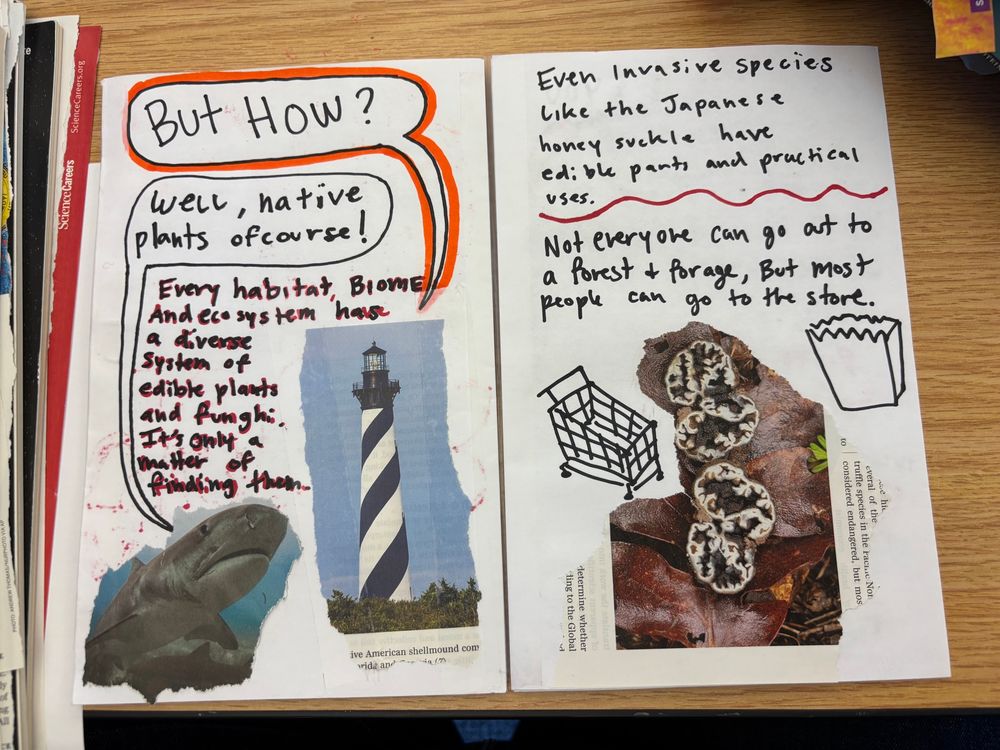 But How?
Well, native
plants ofcourse!
Every habitat, Biome
And ecosystem have
a diverse
system of
edible plants
and funghi.
It's only a
matter of
finding them.
ive American shellmound com
Even Invasive species
Like the Japanese
honey suckle have
edible parts and practical
uses.
Not everyone can go out to
a forest + forage, But most
people can go to the store.
to
everal of the
truffle species in the Pacific Nor
considered endangered, but mos
determine whether
ling to the Global
ScienceCareers.org
ScienceCareers